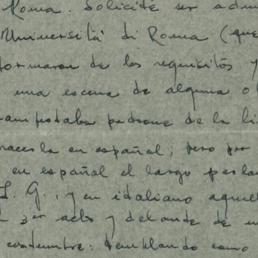 Roma. Solicité ser adm
Università di Roma (que
formaron de los requisitos y
una escena de alguna o
de la li
hacerla en español; pero por
en español el largo parla
L. G., y en italiano aquel
3er acto y delante de un
costumbre: temblando como